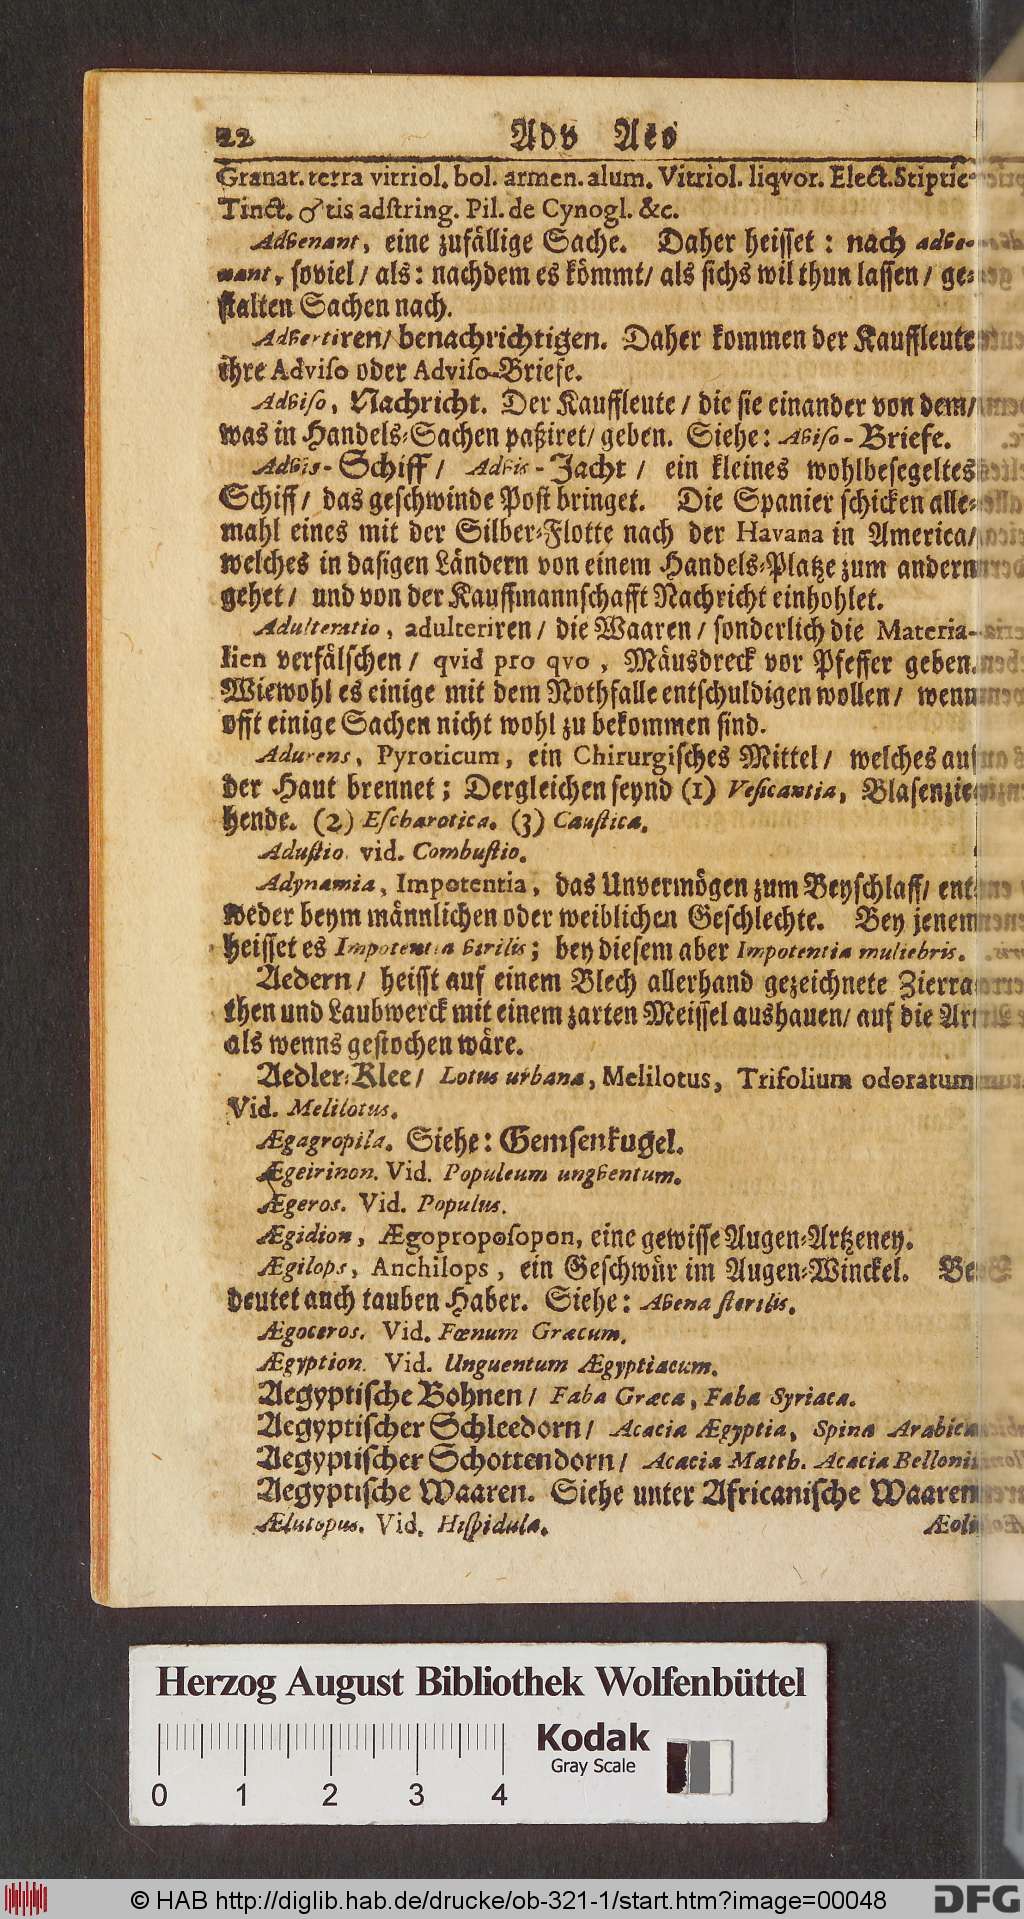 22 Adv Aeo
Granat. terra vitriol. bol. armen. alum. Vitriol. liqvor. Elect. Stiptic-
Tinct. ♂tis adſtring. Pil. de Cynogl. &c.
Advenant, eine zufällige Sache. Daher heiſſet: nach adve-
nant, ſoviel/ als: nachdem es kömmt/ als ſichs wil thun laſſen/ ge-
ſtalten Sachen nach.
Advertiren/ benachrichtigen. Daher kommen der Kauffleute
ihre Adviſo oder Adviſo-Briefe.
Adviſo, Nachricht. Der Kauffleute/ die ſie einander von dem/
was in Handels-Sachen paßiret/ geben. Siehe: Aviſo-Briefe.
Advis-Schiff/ Advis-Jacht/ ein kleines wohlbeſegeltes
Schiff/ das geſchwinde Poſt bringet. Die Spanier ſchicken alle-
mahl eines mit der Silber-Flotte nach der Havana in America/
welches in daſigen Ländern von einem Handels-Platze zum andern
gehet/ und von der Kauffmannſchafft Nachricht einhohlet.
Adulteratio, adulteriren/ die Waaren/ ſonderlich die Materia-
lien verfälſchen/ qvid pro qvo, Mäusdreck vor Pfeffer geben.
Wiewohl es einige mit dem Nothfalle entſchuldigen wollen/ wenn
offt einige Sachen nicht wohl zu bekommen ſind.
Adurens, Pyroticum, ein Chirurgiſches Mittel/ welches auf
der Haut brennet; Dergleichen ſeynd (1) Veſicantia, Blaſenzie-
hende. (2) Eſcharotica. (3) Cauſtica.
Aduſtio. vid. Combuſtio.
Adynamia, Impotentia, das Unvermögen zum Beyſchlaff/ ent-
weder beym männlichen oder weiblichen Geſchlechte. Bey jenem
heiſſet es Impotentia virilis; bey dieſem aber Impotentia muliebris.
Aedern/ heiſſt auf einem Blech allerhand gezeichnete Zierra-
then und Laubwerck mit einem zarten Meiſſel aushauen/ auf die Art
als wenns geſtochen wäre.
Aedler-Klee/ Lotus urbana, Melilotus, Trifolium odoratum
Vid. Melilotus.
Ægagropila. Siehe: Gemſenkugel.
Ægeirinon. Vid. Populeum ungventum.
Ægeros. Vid. Populus.
Ægidion, Ægopropoſopon, eine gewiſſe Augen-Artzeney.
Ægilops, Anchilops, ein Geſchwür im Augen-Winckel. Be-
deutet auch tauben Haber. Siehe: Avena ſterilis.
Ægoceros. Vid. Fœnum Græcum.
Ægyption. Vid. Unguentum Ægyptiacum.
Aegyptiſche Bohnen/ Faba Græca, Faba Syriaca.
Aegyptiſcher Schleedorn/ Acacia Ægyptia, Spina Arabica
Aegyptiſcher Schottendorn/ Acacia Matth. Acacia Bellonii
Aegyptiſche Waaren. Siehe unter Africaniſche Waaren
Ælutopus. Vid. Hiſpidula.
Æoli
Herzog August Bibliothek Wolfenbüttel
Kodak
Gray Scale
0 1 2 3 4
© HAB http://diglib.hab.de/drucke/ob-321-1/start.htm?image=00048
DFG